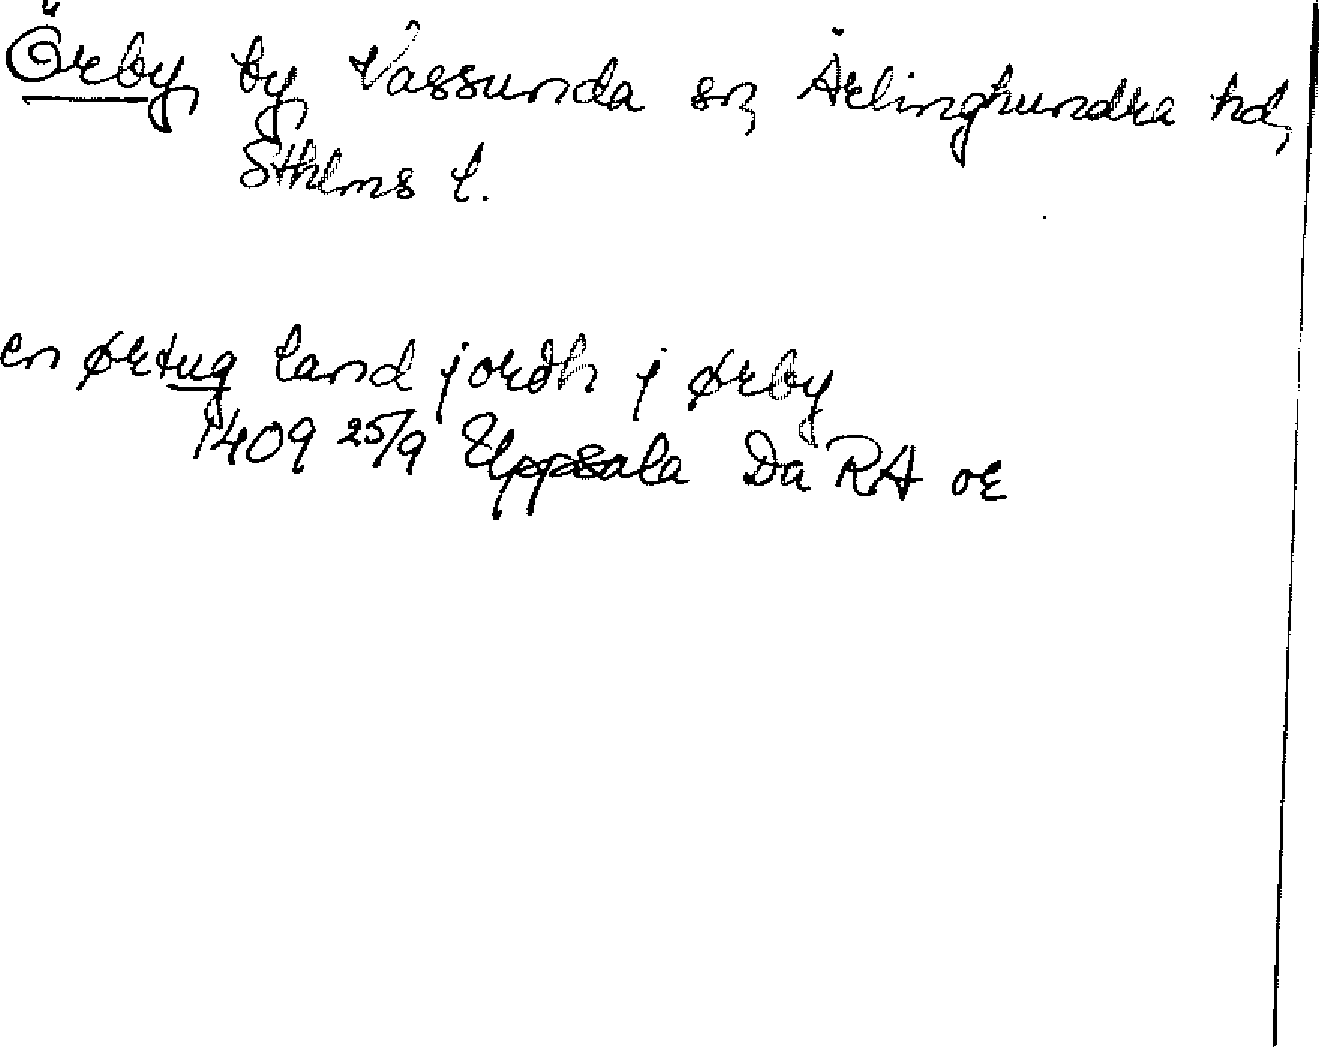 Örby, by, Vassunda sn, Ärlinghundra hd,
Sthlms l.
en ørtug land jordh j ørby
1409 25/9 Uppsala Da RA or